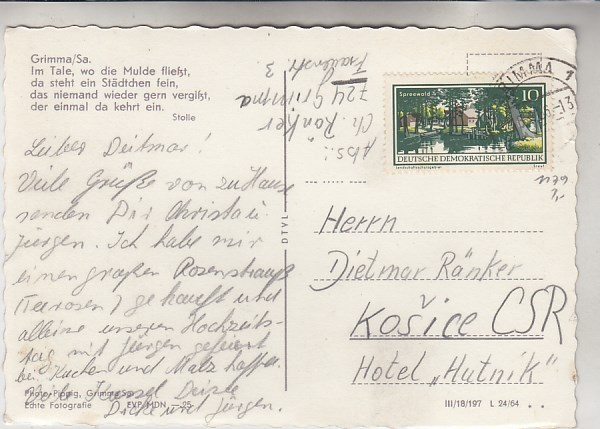 Grimma/Sa.
Im Tale, wo die Mulde fließt,
da steht ein Städtchen fein,
das niemand wieder gern vergißt,
der einmal da kehrt ein.
Stolle
Lieber Deitmar!
Viele Grüße von zu Hause
senden Dir Christa u.
Jürgen. Ich habe mir
einen großen Rosenstrauß
(Teerosen) gekauft und
alleine unseren Hochzeits-
tag mit Jürgen gefeiert
bei Kuchen und Malzkaffee.
Deine
und Jürgen.
Photo-Pippig, Grimma/Sa.
Echte Fotografie EVP MDN -.25
Abs.:
Ch. Ränker
724 Grimma
Frauenstr. 3
DTVL
GRIMMA 1
Spreewald
10
DEUTSCHE DEMOKRATISCHE REPUBLIK
Landschaftsschutzgebiet
1179
Herrn
Dietmar Ränker
Košice CSR
Hotel „Hutník"
III/18/197 L 24/64